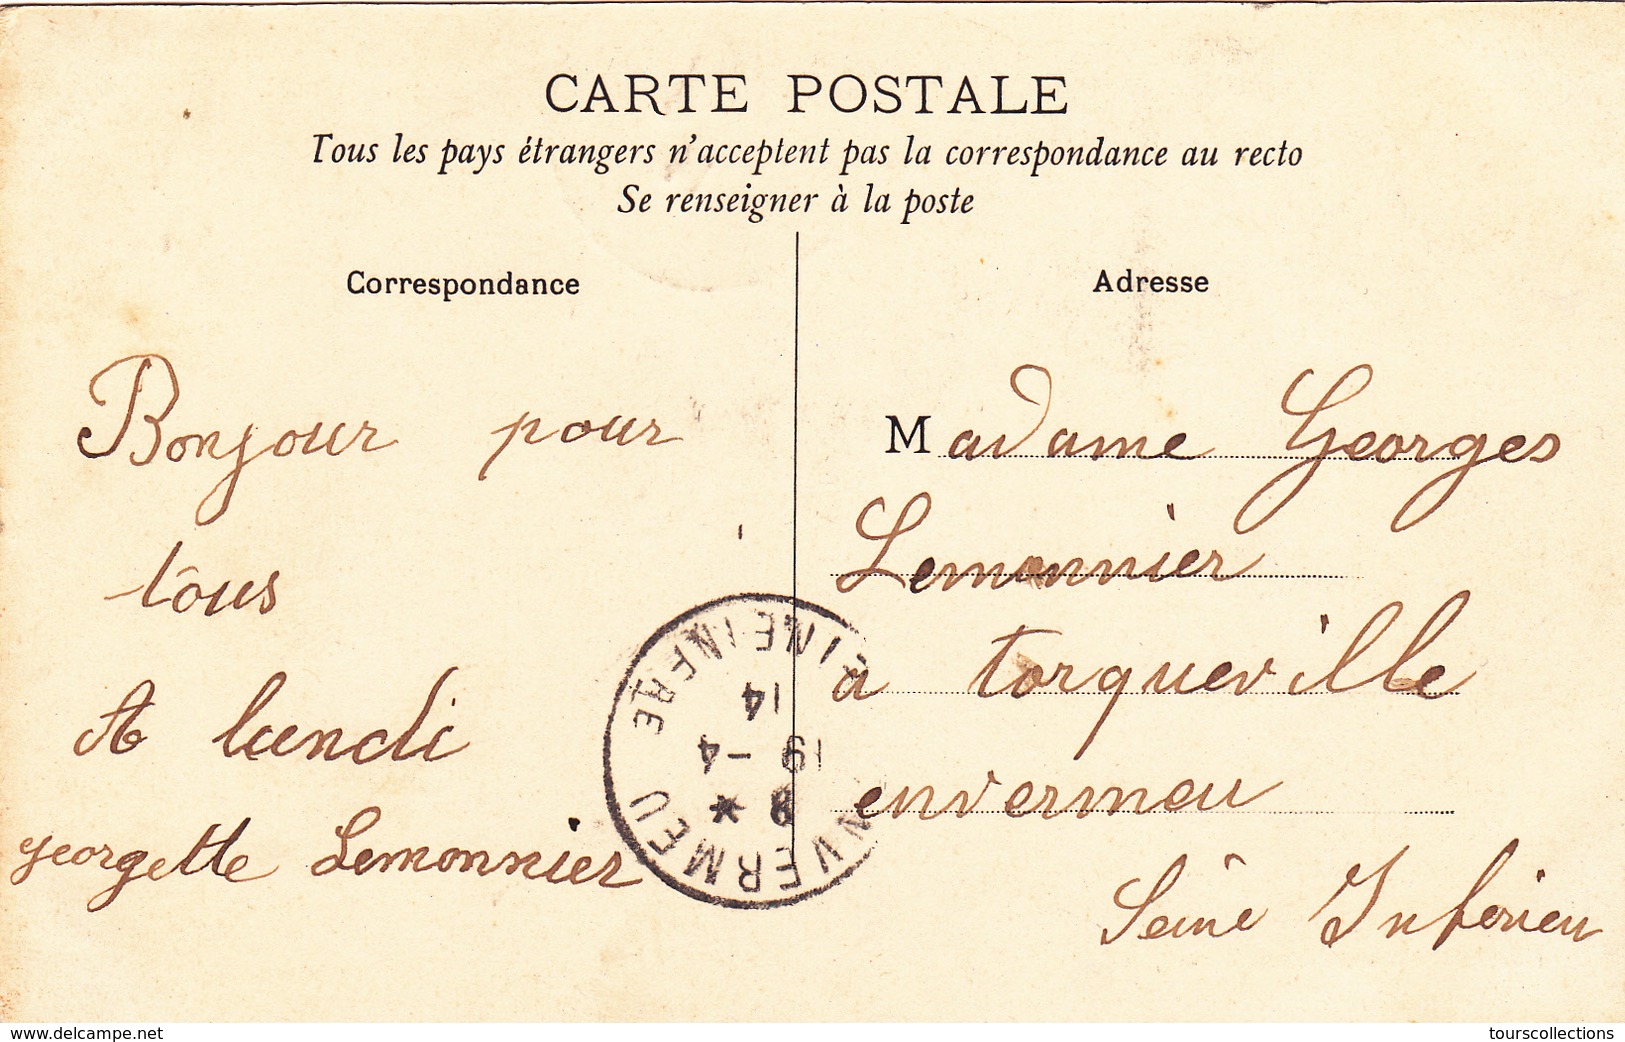 CARTE POSTALE
Tous les pays étrangers n'acceptent pas la correspondance au recto
Se renseigner à la poste
Correspondance
Bonjour pour
tous
A lundi
georgette Lemonnier
Adresse
Madame Georges
Lemonnier
a torqueville
envermeu
Seine Inférieu
ENVERMEU
SEINE INFRE
8 *
19 - 4
14
www.delcampe.net
tourscollections